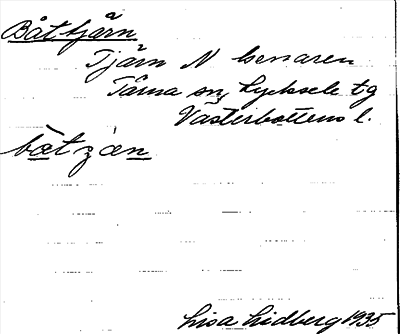 Båttjärn
Tjärn N Isenaren
Tärna sn, Lycksele tg
Västerbottens l.
bat z æn
Lisa Lidberg 1935